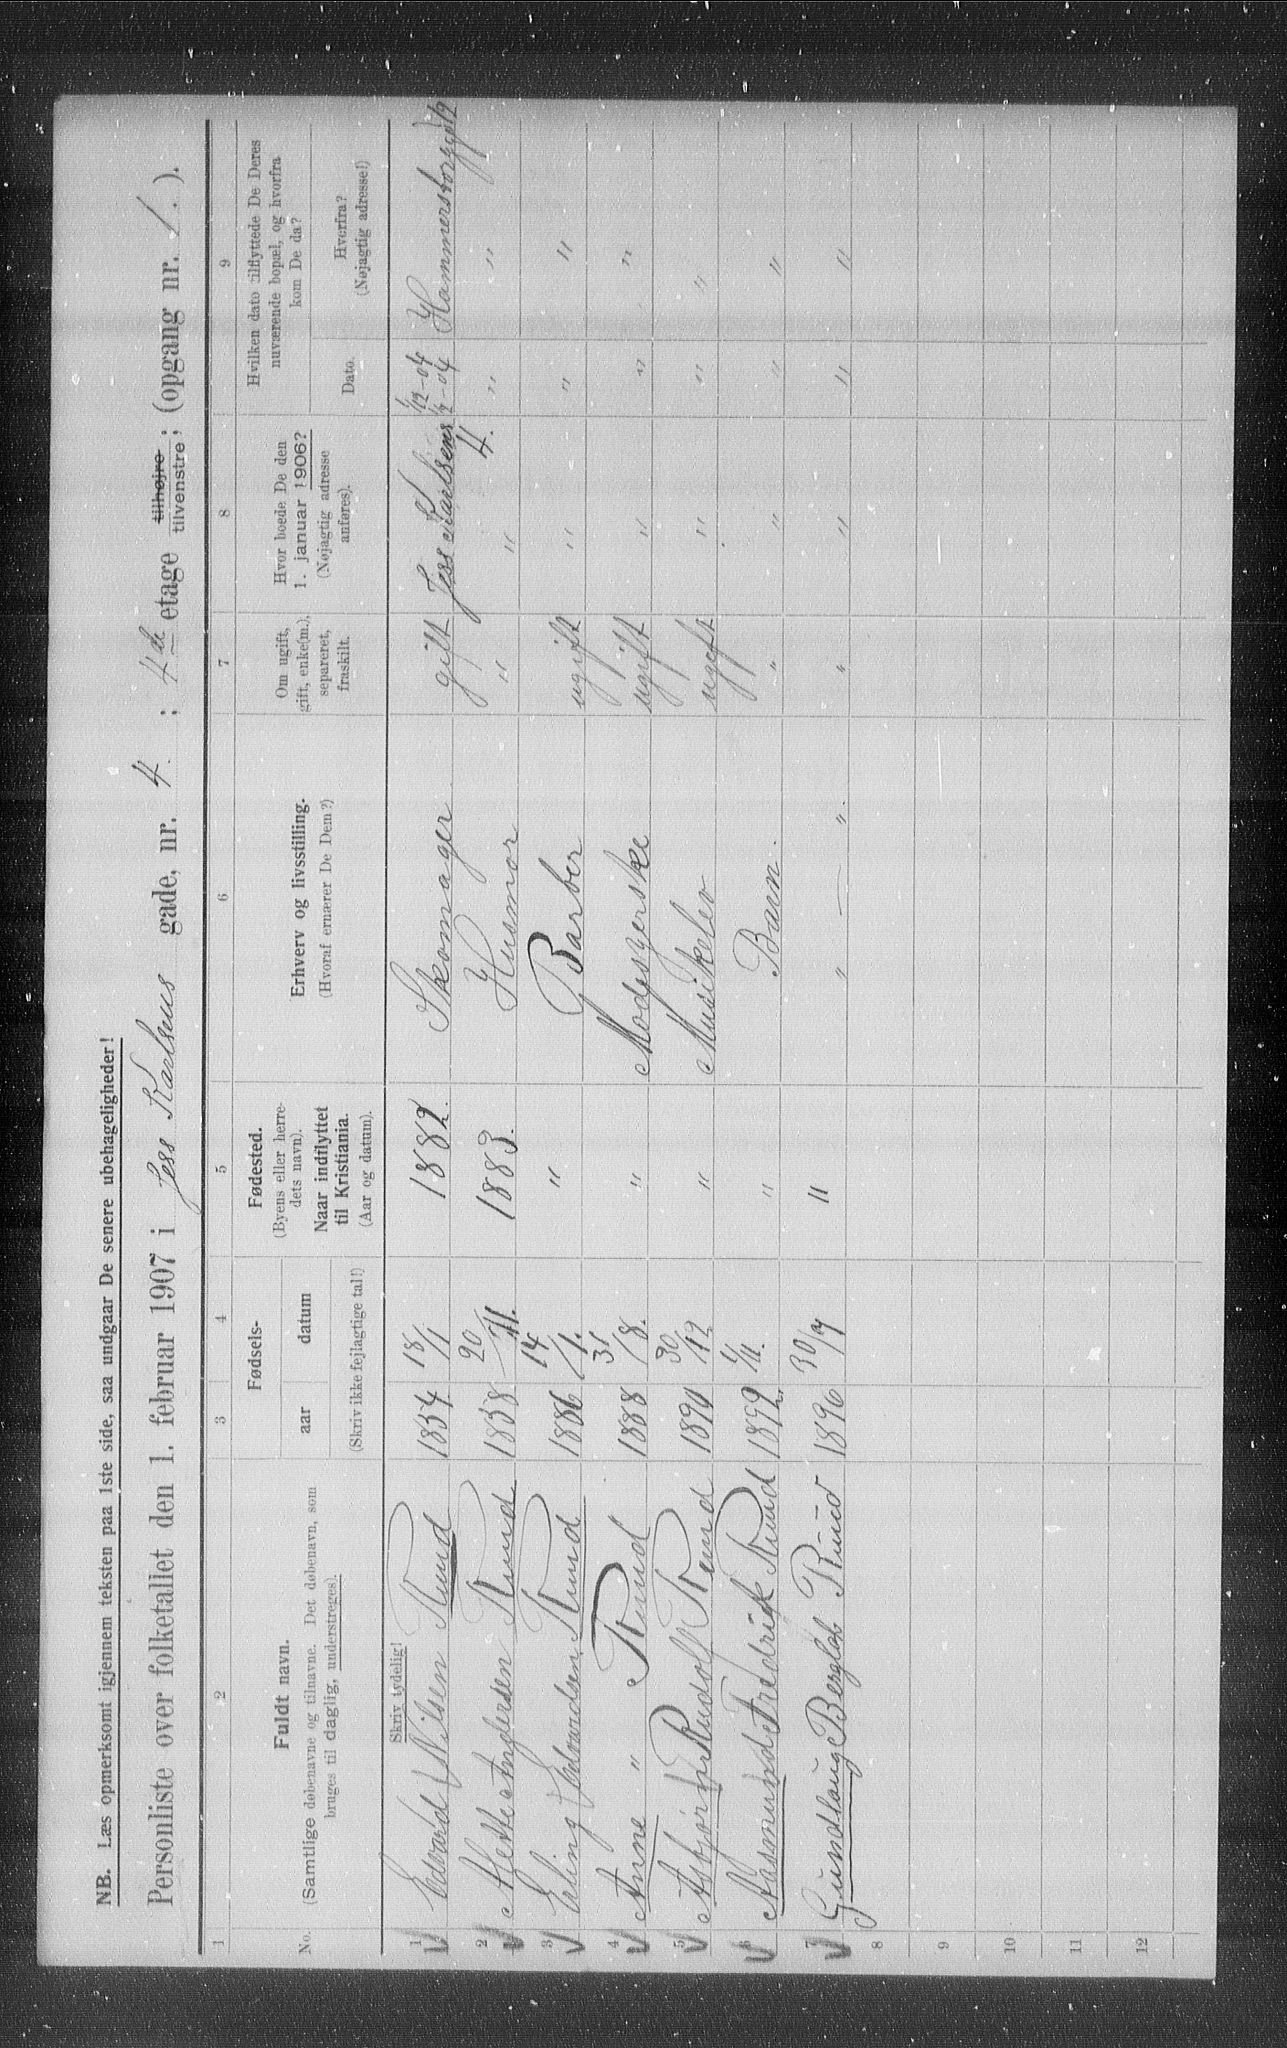 NB. Læs opmerksomt igjennem teksten paa 1ste side, saa undgaar De senere ubehageligheder!
Personliste over folketallet den 1. februar 1907 i Jess Karlsens gade, nr. 4. ; 4de etage tilhøjre tilvenstre; (opgang nr. 1.).
1 2 3 4 5 6 7 8 9
No.
Fuldt navn.
(Samtlige døbenavne og tilnavne. Det døbenavn, som
bruges til daglig, understreges).
Fødsels-
aar datum
(Skriv ikke fejlagtige tal!)
Fødested.
(Byens eller herre-
dets navn).
Naar indflyttet
til Kristiania.
(Aar og datum).
Erhverv og livsstilling.
(Hvoraf ernærer De Dem?)
Om ugift,
gift, enke(m.),
separeret,
fraskilt.
Hvor boede De den
1. januar 1906?
(Nøjagtig adresse
anføres).
Hvilken dato tilflyttede De Deres
nuværende bopæl, og hvorfra
kom De da?
Dato.
Hvorfra?
(Nøjagtig adresse!)
Skriv tydelig!
1 Edvard Nilsen Ruud 1854 18/1 1882. Skomager gift Jess Karlsens 4. 1/12-04 1/2-04 Hammerstorggd 12
2 Mette Andersen Ruud 1858 20/11. 1883. Husmor " " " "
3 Erling Edvardsen Ruud 1886 14/1. " Barber ugift " " "
4 Anne " Ruud 1888 31/8. " Modesyerske ugift " " "
5 Asbjørn Rudolf Ruud 1890 30/12 " Musikelev ugift " " "
6 Aasmund Fredrik Ruud 1892 4/11. " Barn. " " " "
7 Gundlaug Berglot Ruud 1896 30/7 " " — " . " " " "
8
9
10
11
12